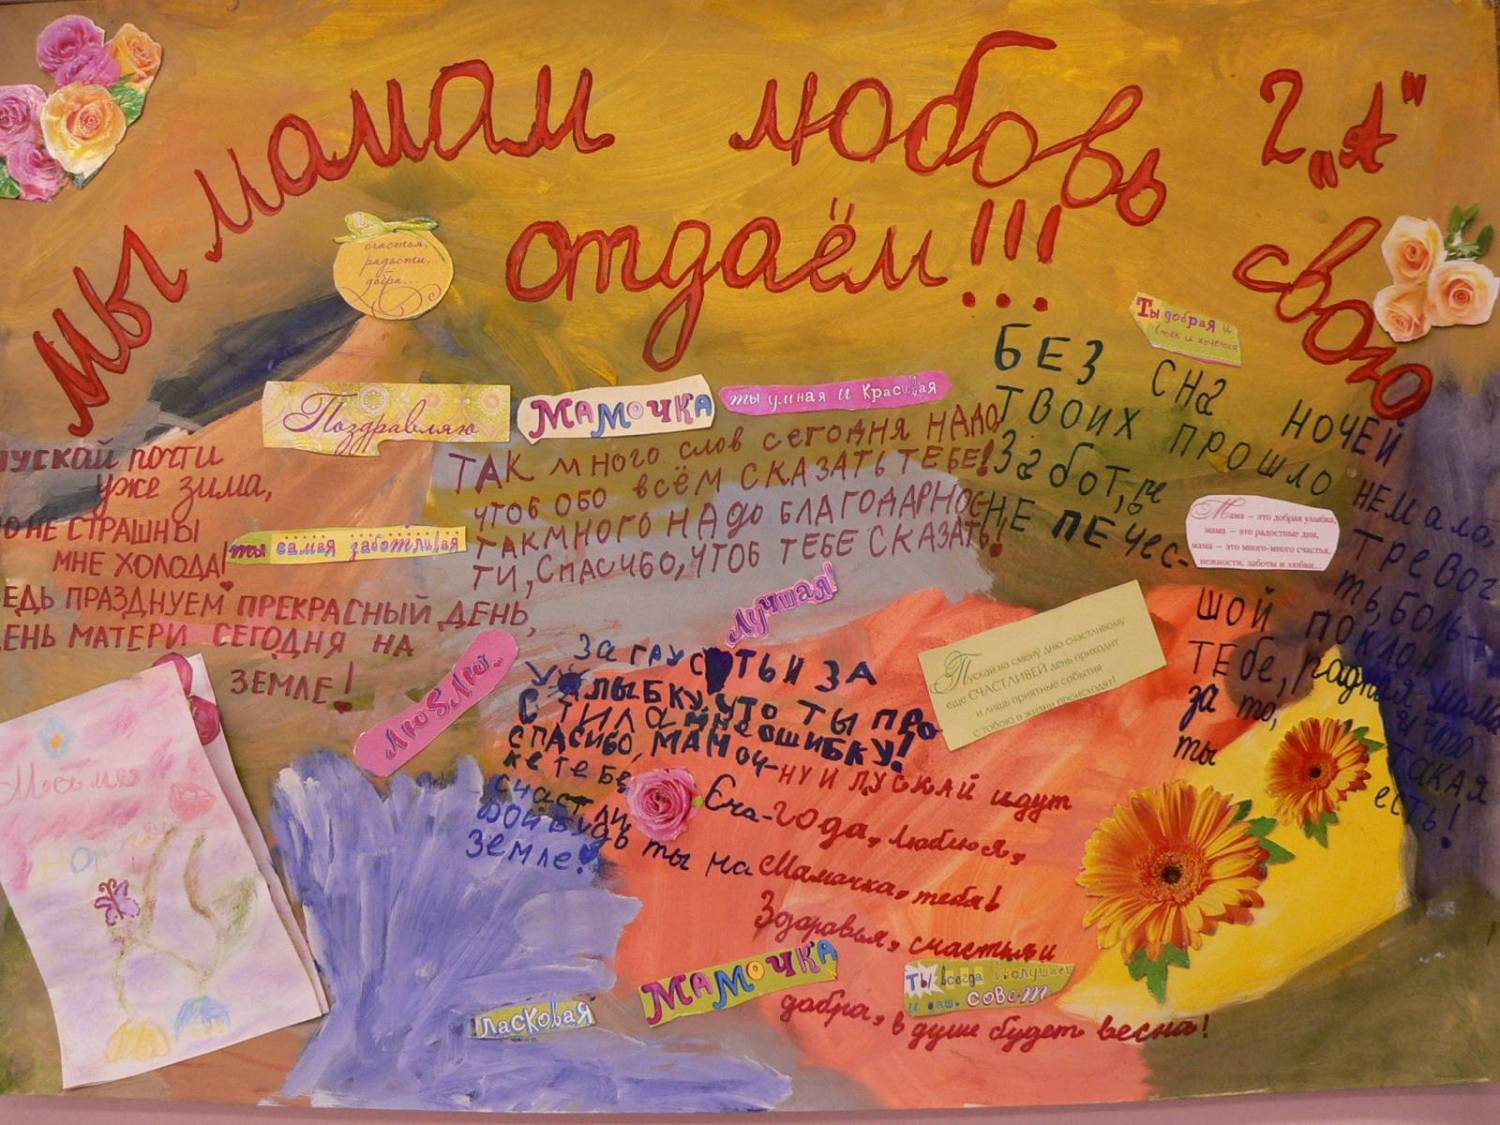 Мы мамам любовь свою
отдаём!!!
2 „А"
счастья,
радости,
добра...
Ты добрая и
Поздравляю
МАМОЧКА
ты умная и красивая
ПУСКАЙ ПОЧТИ
УЖЕ ЗИМА,
НО НЕ СТРАШНЫ
МНЕ ХОЛОДА!
ВЕДЬ ПРАЗДНУЕМ ПРЕКРАСНЫЙ ДЕНЬ,
ДЕНЬ МАТЕРИ СЕГОДНЯ НА
ЗЕМЛЕ!
ты самая заботливая
ТАК МНОГО СЛОВ СЕГОДНЯ НАДО,
ЧТОБ ОБО ВСЁМ СКАЗАТЬ ТЕБЕ!
ТАК МНОГО НАДО БЛАГОДАРНОС-
ТИ, СПАСИБО, ЧТОБ ТЕБЕ СКАЗАТЬ!
БЕЗ СНА НОЧЕЙ
ТВОИХ ПРОШЛО НЕМАЛО,
Забот, тревог
НЕ ПЕЧЕС-ть, БОЛЬ-
ШОЙ ПОКЛОН
ТЕбе, родная мама
за то, за что
ты такая
есть!
Мама – это добрая улыбка,
мама – это радостные дни,
мама – это много-много счастья,
нежности, заботы и любви...
Лучшая!
ЛЮБЛЮ
Пускай на смену дню счастливому
еще СЧАСТЛИВЕЙ день приходит
и лишь приятные события
с тобою в жизни происходят!
За ГРУСТЬ И ЗА
УЛЫБКУ, ЧТО ТЫ ПРО
СТИЛА МНЕ ОШИБКУ!
СПАСИБО, МАМОЧ-
КЕ ТЕБЕ,
СЧАСТЛИ
ВОЙ БУДЬ ты на
Земле!
НУ И ПУСКАЙ идут
года,
Люблю я,
Мамочка, тебя!
Здоровья, счастья и
добра, в душе будет весна!
Маме
МАМОЧКА
ТЫ всегда
совет
ласковая